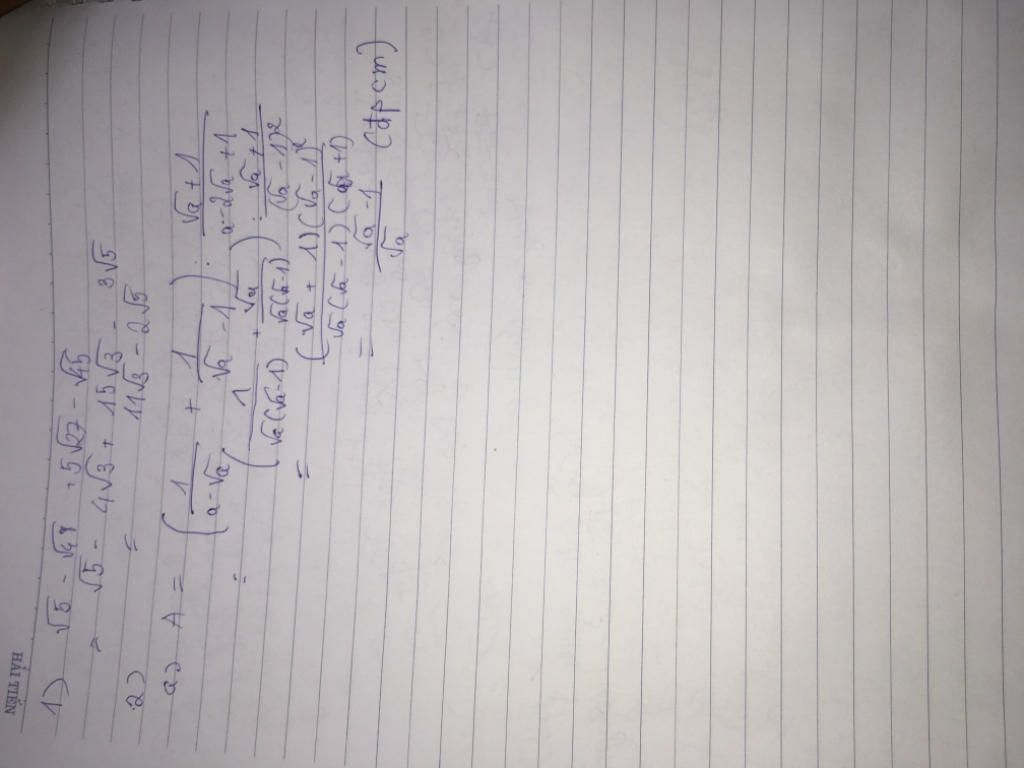 HẢI TIẾN
1) √5 - √48 + 5√27 - √45
= √5 - 4√3 + 15√3 - 3√5
= 11√3 - 2√5
2)
a) A = (1/(a-√a) + 1/(√a - 1)) : (√a + 1)/(a - 2√a + 1)
= (1/(√a(√a-1)) + √a/(√a(√a-1))) : (√a + 1)/(√a - 1)²
= (√a + 1)(√a - 1)²/(√a(√a - 1)(√a + 1))
= (√a - 1)/√a (đpcm)